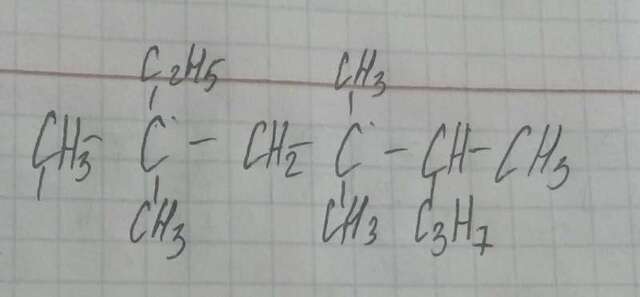 C2H5 CH3
CH3 - C - CH2 - C - CH - CH3
CH3 CH3 C3H7